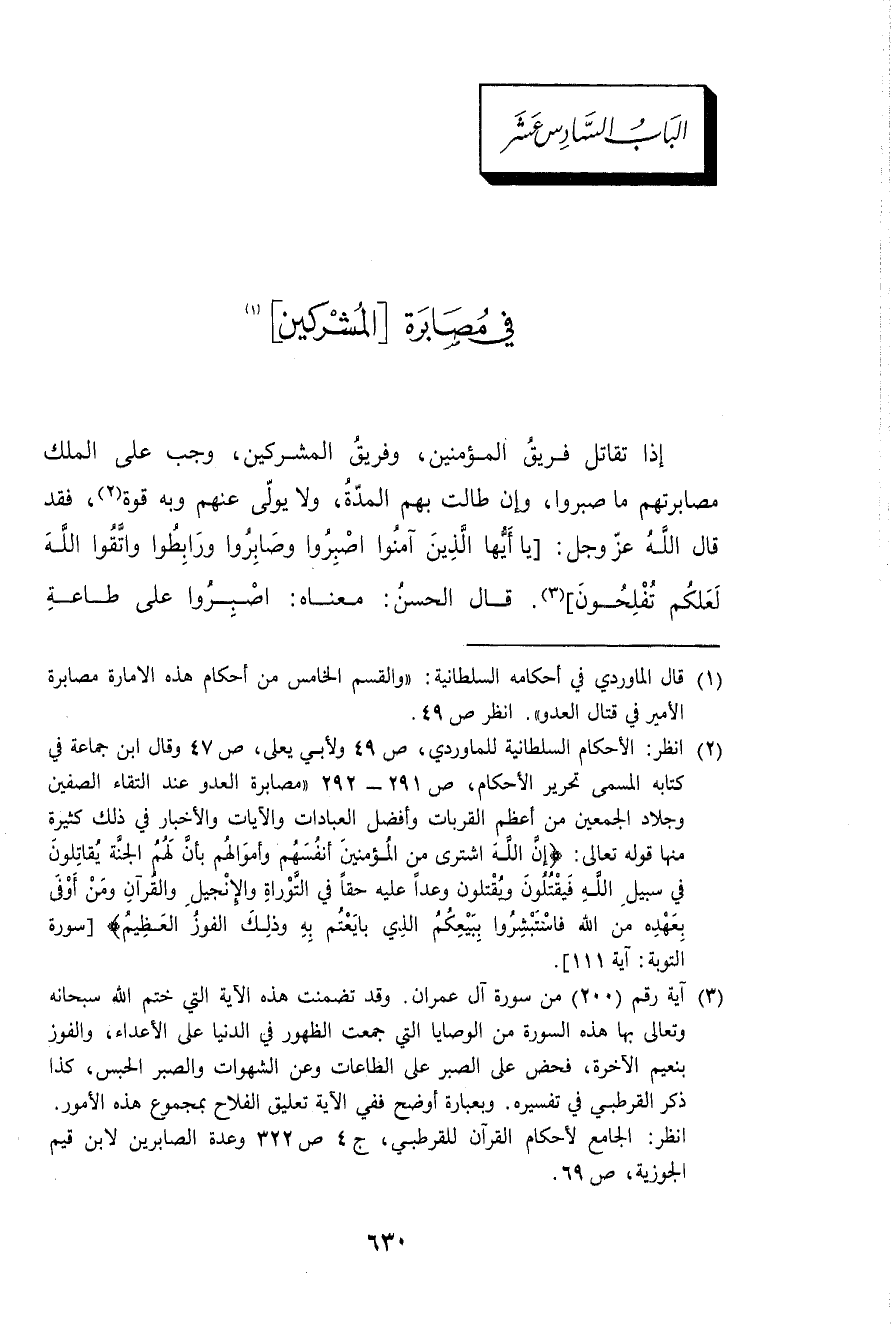 البَابُ السَّادِس عَشَر
في مُصَابَرَة [المُشْرِكين] (١)
إذا تقاتل فريقُ المؤمنين، وفريقُ المشركين، وجب على الملك
مصابرتهم ما صبروا، وإن طالت بهم المدّةُ، ولا يولّى عنهم وبه قوة(٢)، فقد
قال اللَّهُ عزّ وجل: [يا أَيُّها الَّذِينَ آمنُوا اصْبِرُوا وصَابِرُوا ورَابِطُوا واتَّقُوا اللَّهَ
لَعَلكُم تُفْلِحُونَ](٣). قال الحسنُ: معناه: اصْبِرُوا على طاعةِ
(١) قال الماوردي في أحكامه السلطانية: «والقسم الخامس من أحكام هذه الامارة مصابرة
الأمير في قتال العدو». انظر ص ٤٩.
(٢) انظر: الأحكام السلطانية للماوردي، ص ٤٩ ولأبي يعلى، ص ٤٧ وقال ابن جماعة في
كتابه المسمى تحرير الأحكام، ص ٢٩١ ــ ٢٩٢ «مصابرة العدو عند التقاء الصفين
وجلاد الجمعين من أعظم القربات وأفضل العبادات والآيات والأخبار في ذلك كثيرة
منها قوله تعالى: ﴿إنَّ اللَّهَ اشترى من المُؤمنينَ أنفُسَهُم وأموَالهُم بأنَّ لَهُمُ الجنَّة يُقاتِلونَ
في سبيلِ اللَّهِ فَيقْتُلُونَ ويُقْتلون وعداً عليه حقاً في التَّوْراةِ والإنْجيلِ والقُرآنِ ومَنْ أَوْفَى
بِعَهْدِه من الله فاسْتَبْشِرُوا بِبَيْعِكُمُ الذي بايَعْتُم بِهِ وذلِكَ الفوزُ العَظِيمُ﴾ [سورة
التوبة: آية ١١١].
(٣) آية رقم (٢٠٠) من سورة آل عمران. وقد تضمنت هذه الآية التي ختم الله سبحانه
وتعالى بها هذه السورة من الوصايا التي جمعت الظهور في الدنيا على الأعداء، والفوز
بنعيم الآخرة، فحض على الصبر على الطاعات وعن الشهوات والصبر الحبس، كذا
ذكر القرطبي في تفسيره. وبعبارة أوضح ففي الآية تعليق الفلاح بمجموع هذه الأمور.
انظر: الجامع لأحكام القرآن للقرطبي، ج ٤ ص ٣٢٢ وعدة الصابرين لابن قيم
الجوزية، ص ٦٩.
٦٣٠